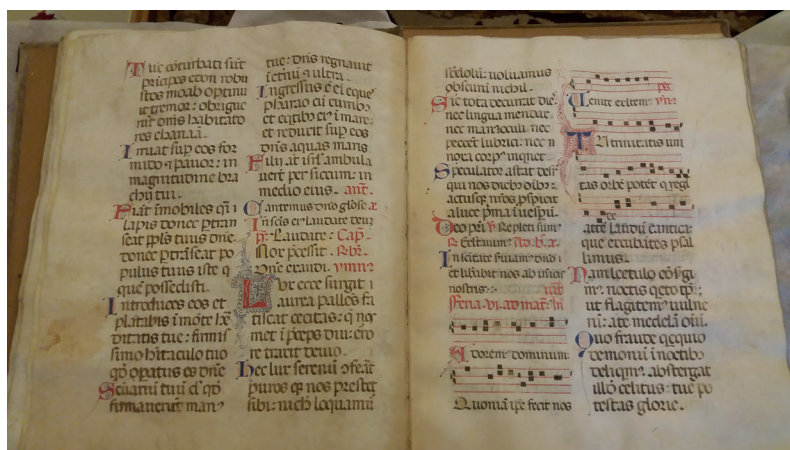 Tuc cōturbati sūt
principes edon robu
stos moab optinu
it tremor: obrigue
runt om̄s habitato
res chanaā.
Irruat sup eos for
mido ⁊ pauor: in
magnitudine bra
chij tui.
Fiāt īmobiles q̄i
lapis donec ꝑtran
seat ppl̄s tuus dn̄e
donec ꝑtrāseat po
pulus tuus iste q̄
quē possedisti.
Introduces eos et
plātabis ī mōte
ditatis tue: firmis
simo hītaculo tuo
qd̄ opatus es dn̄e
Scuariū tuū d̄ qd̄
firmauerūt man⁹
tue: dn̄s regnauit
ī etnū ⁊ ultra.
Ingressus ē eī eque
pharao cū
et eqtibꝫ ei⁹ ī mare:
et reduxit sup eos
dn̄s aquas maris
Filii aūt isrl̄ ambula
uerūt per siccum: in
medio eius. ant.
Cantemus dn̄o gl̄ose
In scīs ei⁹ laudate deū
ps Laudate: Cap.
Nox p̄cessit.
Dn̄e exaudi. ymn⁹
Lux ecce surgit
aurea pallēs fa
tiscat cecitas: q̄ nos
met ī p̄ceps diu: ero
re traxit deuio.
Hec lux serenū
puros qꝫ nos prestet
sibi: nichil loquamur
sbdolū: uoluamus
obscurū nichil.
Sic tota decurrat die:
nec lingua mendax
nec man⁹ oculi nec
peccet lubrici: nec n
noxa corp⁹ inqnet.
Speculator astat desup
qui nos diebꝫ oībꝫ:
actusqꝫ nr̄os ꝓspicit
a luce p̄ma ī uesp̄ū.
Deo pr̄i Repleti sum⁹
Exultauim⁹
In scītate
nostris:
Feria. vi. ad mat. In
Adorem dominum:
Quoniā ipe fecit nos
ps
Uenite exltem: ym⁹
Tu trinitatis uni
tas orbē potēt q̄ regi
atte laudū cantica:
que excubātes psal
limus.
Nam lectulo cōsurgi
m⁹: noctis qeto tp̄e:
ut flagitem⁹ uulne
rū: a te medelā oīm.
Quo fraude qcquid
demonū ī noctibꝫ
deliqm⁹: abstergat
illd̄ celitus: tue po
testas glorie.